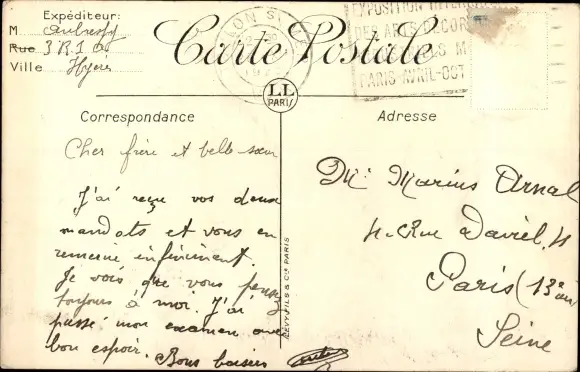 Expéditeur:
M
Rue 3 R I A
Ville Hyères
Carte Postale
LON S
EXPOSITION INTERN
DES ARTS DECOR
M
PARIS-AVRIL-OCT
LL
PARIS
Correspondance
Adresse
Cher frère et belle-sœur
J'ai reçu vos deux
mandats et vous en
remercie infiniment.
Je vois que vous pensez
toujours à moi. J'ai
passé mon examen avec
bon espoir. Bons baisers
LEVY FILS & Cie PARIS
Mr Marius Arnal
4 Rue Daviel, 4
Paris (13è arr
Seine